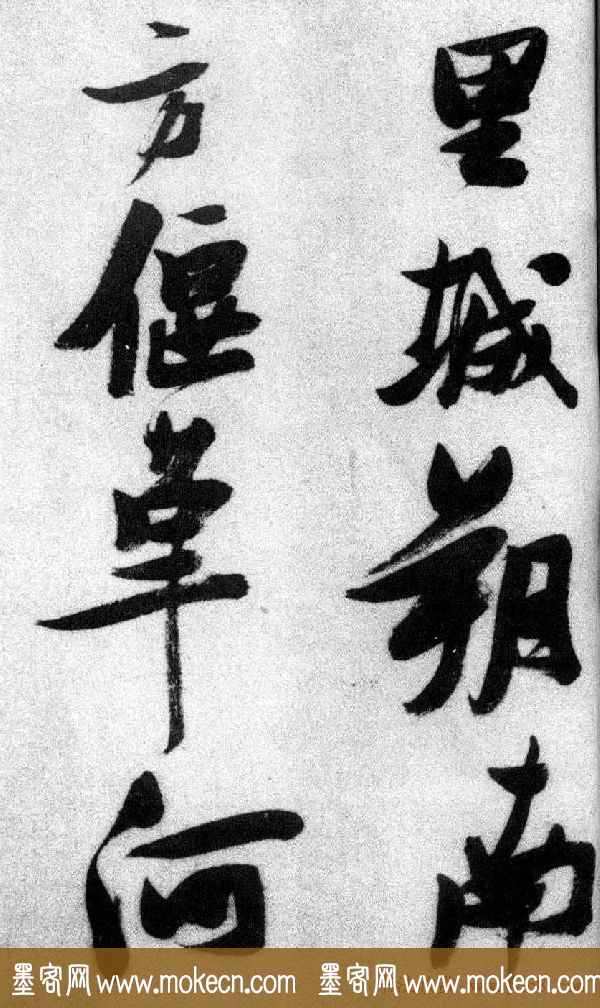 里城朔南
方偃草何
墨客网 www.mokecn.com 墨客网 www.mokecn.com